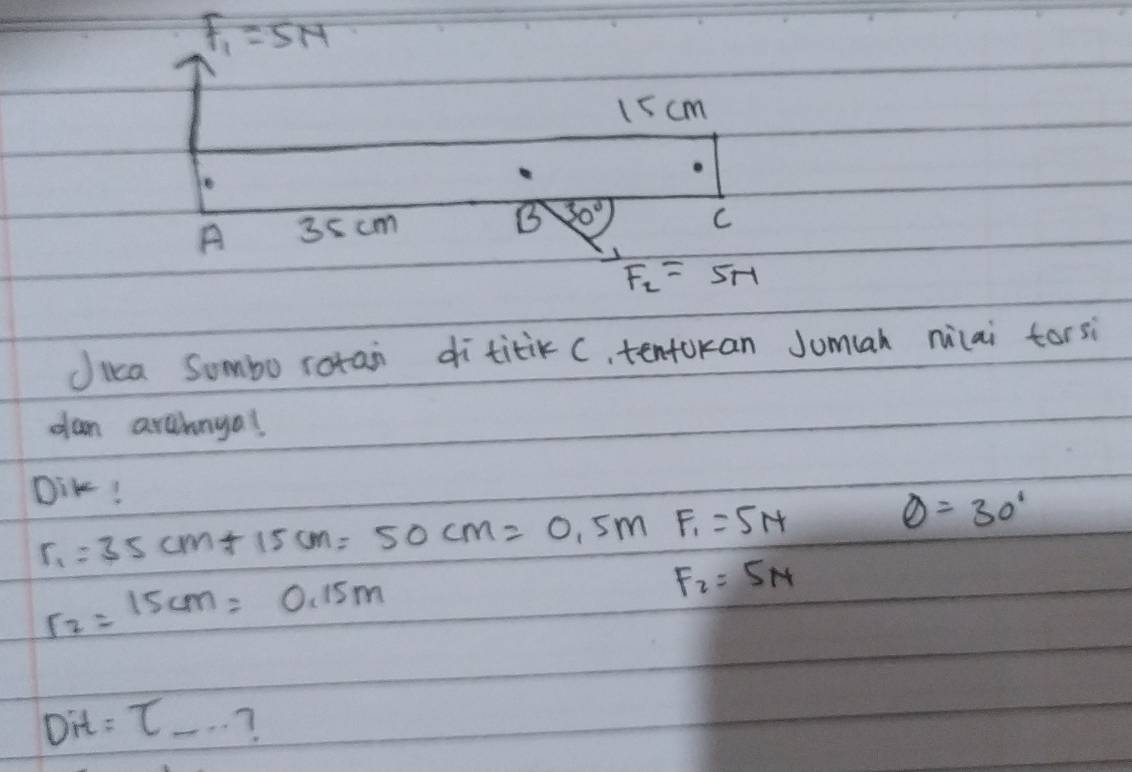 F₁ = 5N
15 cm
A 35 cm B 30° C
F₂ = 5N
Jika Sumbu rotasi di titik C, tentukan Jumlah nilai torsi
dan arahnya!
Dik:
r₁ = 35 cm + 15 cm = 50 cm = 0,5 m F₁ = 5N θ = 30°
r₂ = 15 cm = 0,15 m F₂ = 5N
Dit = τ ....?